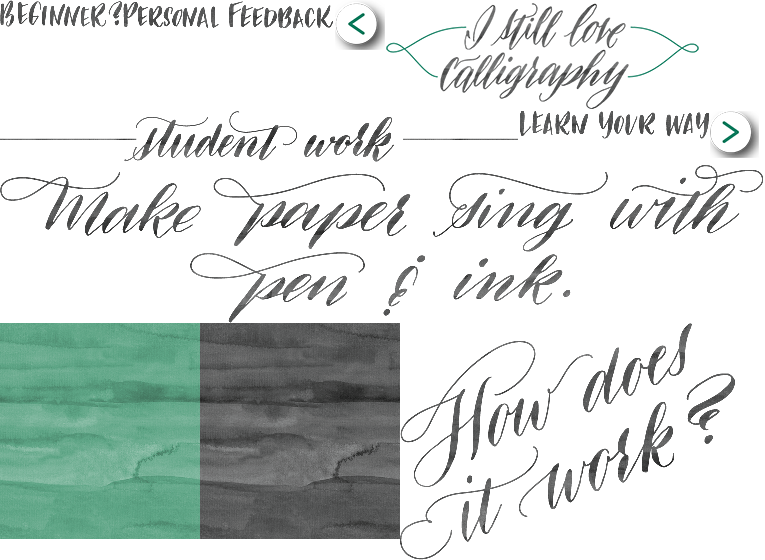 BEGINNER? PERSONAL FEEDBACK
I still love
Calligraphy
student work
LEARN YOUR WAY
Make paper sing with
pen & ink.
How does
it work?